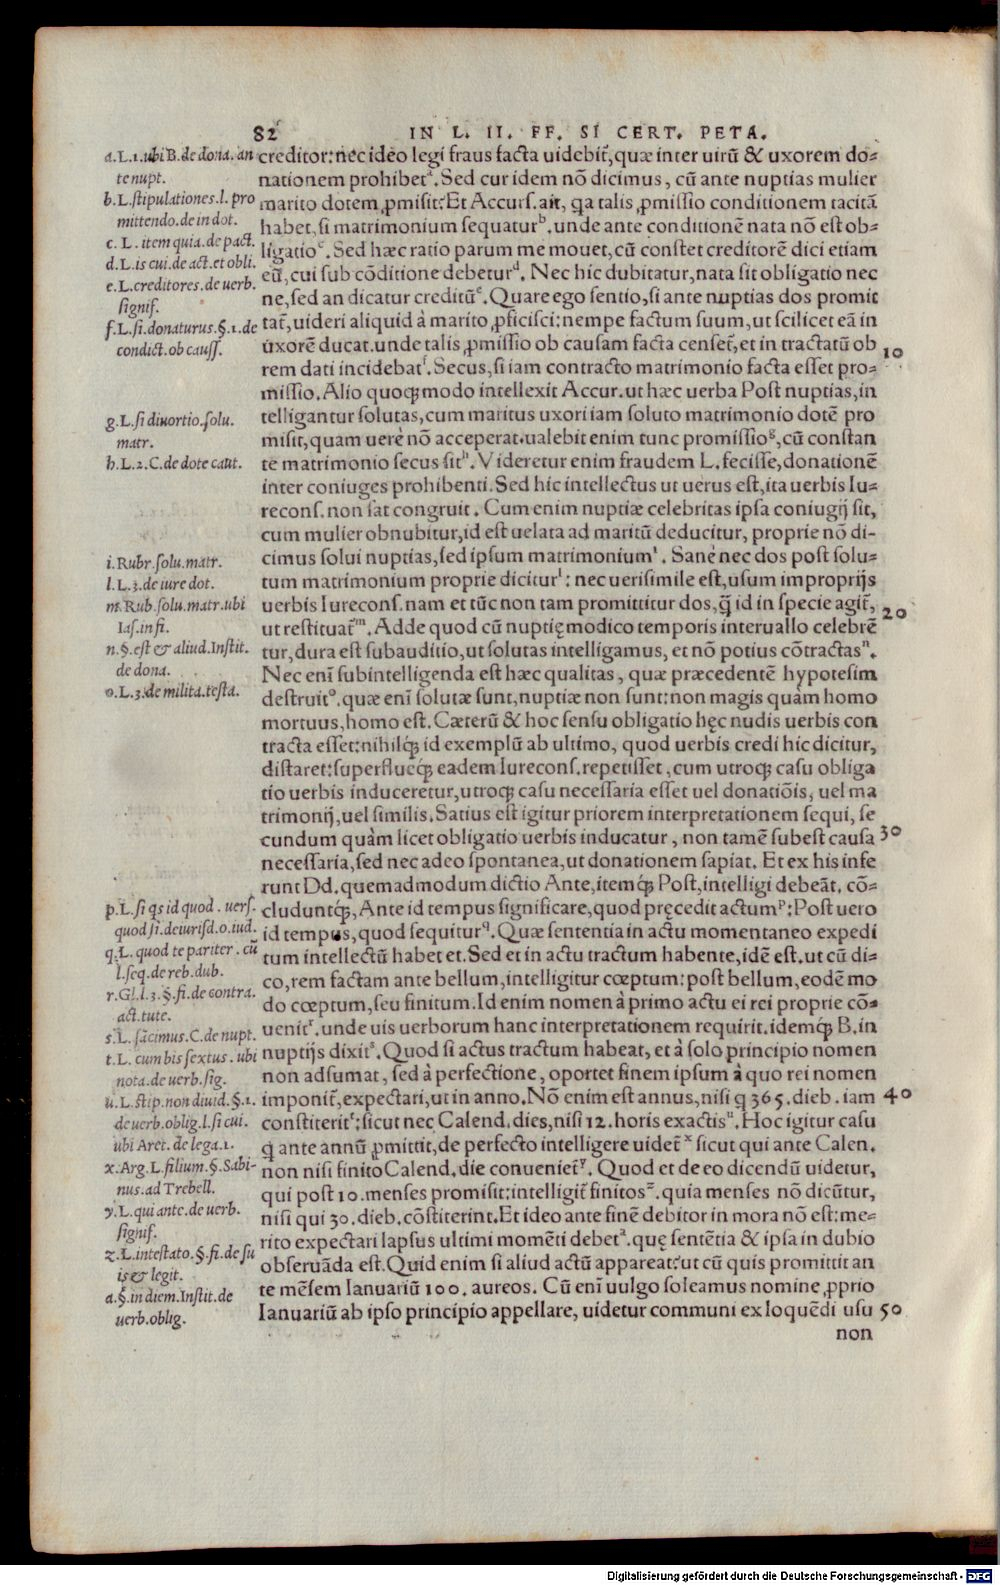 82 IN L. II. FF. SI CERT. PETA.
creditor: nec ideo legi fraus facta uidebit̃, quæ inter uirũ & uxorem do=
nationem prohibetᵃ. Sed cur idem nõ dicimus, cũ ante nuptias mulier
marito dotem ꝓmisit: Et Accurs. ait, qa talis ꝓmissio conditionem tacitã
habet, si matrimonium sequaturᵇ. unde ante conditionẽ nata nõ est ob=
ligatioᶜ. Sed hæc ratio parum me mouet, cũ constet creditorẽ dici etiam
eũ, cui sub cõditione debeturᵈ. Nec hic dubitatur, nata sit obligatio nec
ne, sed an dicatur creditũᵉ. Quare ego sentio, si ante nuptias dos promit
tat̃, uideri aliquid à marito ꝓficisci: nempe factum suum, ut scilicet eã in
uxorẽ ducat. unde talis ꝓmissio ob causam facta censet̃, et in tractatũ ob
rem dati incidebatᶠ. Secus, si iam contracto matrimonio facta esset pro= 10
missio. Alio quoqꝫ modo intellexit Accur. ut hæc uerba Post nuptias, in
telligantur solutas, cum maritus uxori iam soluto matrimonio dotẽ pro
misit, quam uerè nõ acceperat. ualebit enim tunc promissioᵍ, cũ constan
te matrimonio secus sitʰ. Videretur enim fraudem L. fecisse, donationẽ
inter coniuges prohibenti. Sed hic intellectus ut uerus est, ita uerbis Iu=
recons. non sat congruit. Cum enim nuptiæ celebritas ipsa coniugij sit,
cum mulier obnubitur, id est uelata ad maritũ deducitur, proprie nõ di-
cimus solui nuptias, sed ipsum matrimoniumⁱ. Sanè nec dos post solu=
tum matrimonium proprie diciturˡ: nec uerisimile est, usum improprijs
uerbis Iurecons. nam et tũc non tam promittitur dos, q̃ id in specie agit̃, 20
ut restituat̃ᵐ. Adde quod cũ nuptię modico temporis interuallo celebrẽ
tur, dura est subauditio, ut solutas intelligamus, et nõ potius cõtractasⁿ.
Nec enĩ subintelligenda est hæc qualitas, quæ præcedentẽ hypotesim
destruitᵒ. quæ enĩ solutæ sunt, nuptiæ non sunt: non magis quàm homo
mortuus, homo est. Cæterũ & hoc sensu obligatio hęc nudis uerbis con
tracta esset: nihilqꝫ id exemplũ ab ultimo, quod uerbis credi hic dicitur,
distaret: superflueqꝫ eadem Iurecons. repetisset, cum utroqꝫ casu obliga
tio uerbis induceretur, utroqꝫ casu necessaria esset uel donatiõis, uel ma
trimonij, uel similis. Satius est igitur priorem interpretationem sequi, se
cundum quàm licet obligatio uerbis inducatur, non tamẽ subest causa 30
necessaria, sed nec adeo spontanea, ut donationem sapiat. Et ex his infe
runt Dd. quemadmodum dictio Ante, itemqꝫ Post, intelligi debeãt. cõ=
cluduntqꝫ, Ante id tempus significare, quod pręcedit actumᵖ: Post uero
id tempus, quod sequitur^q. Quæ sententia in actu momentaneo expedi
tum intellectũ habet et. Sed et in actu tractum habente, idẽ est. ut cũ di=
co, rem factam ante bellum, intelligitur cœptum: post bellum, eodẽ mo
do cœptum, seu finitum. Id enim nomen à primo actu ei rei proprie cõ=
uenitʳ. unde uis uerborum hanc interpretationem requirit. idemqꝫ B. in
nuptijs dixitˢ. Quod si actus tractum habeat, et à solo principio nomen
non adsumat, sed à perfectione, oportet finem ipsum à quo rei nomen
imponit̃, expectari, ut in anno. Nõ enim est annus, nisi q 365. dieb. iam 40
constiteritᵗ: sicut nec Calend. dies, nisi 12. horis exactisᵘ. Hoc igitur casu
q ante annũ ꝓmittit, de perfecto intelligere uidet̃ˣ sicut qui ante Calen.
non nisi finito Calend. die conueniet̃ʸ. Quod et de eo dicendũ uidetur,
qui post 10. menses promisit: intelligit̃ finitosᶻ. quia menses nõ dicũtur,
nisi qui 30. dieb. cõstiterint. Et ideo ante finẽ debitor in mora nõ est: me=
rito expectari lapsus ultimi momẽti debetᵃ. quę sentẽtia & ipsa in dubio
obseruãda est. Quid enim si aliud actũ appareat: ut cũ quis promittit an
te mẽsem Ianuariũ 100. aureos. Cũ enĩ uulgo soleamus nomine ꝓprio
Ianuariũ ab ipso principio appellare, uidetur communi ex loquẽdi usu 50
non
a. L. 1. ubi B. de dona. an
te nupt.
b. L. stipulationes. l. pro
mittendo. de in dot.
c. L. item quia. de pact.
d. L. is cui. de act. et obli.
e. L. creditores. de uerb.
signif.
f. L. si. donaturus. §. 1. de
condict. ob causs.
g. L. si diuortio. solu.
matr.
h. L. 2. C. de dote caut.
i. Rubr. solu. matr.
l. L. 3. de iure dot.
m. Rub. solu. matr. ubi
Ias. in fi.
n. §. est & aliud. Instit.
de dona.
o. L. 3. de milita. testa.
p. L. si qs id quod. uers.
quod si. de iurisd. o. iud.
q. L. quod te pariter. cũ
l. seq. de reb. dub.
r. Gl. l. 3. §. fi. de contra.
act. tute.
s. L. sãcimus. C. de nupt.
t. L. cum bis sextus. ubi
nota. de uerb. sig.
u. L. stip. non diuid. §. 1.
de uerb. oblig. l. si cui.
ubi Aret. de lega. 1.
x. Arg. L. filium. §. Sabi-
nus. ad Trebell.
y. L. qui ante. de uerb.
signif.
z. L. intestato. §. fi. de su
is & legit.
a. §. in diem. Instit. de
uerb. oblig.
Digitalisierung gefördert durch die Deutsche Forschungsgemeinschaft - DFG